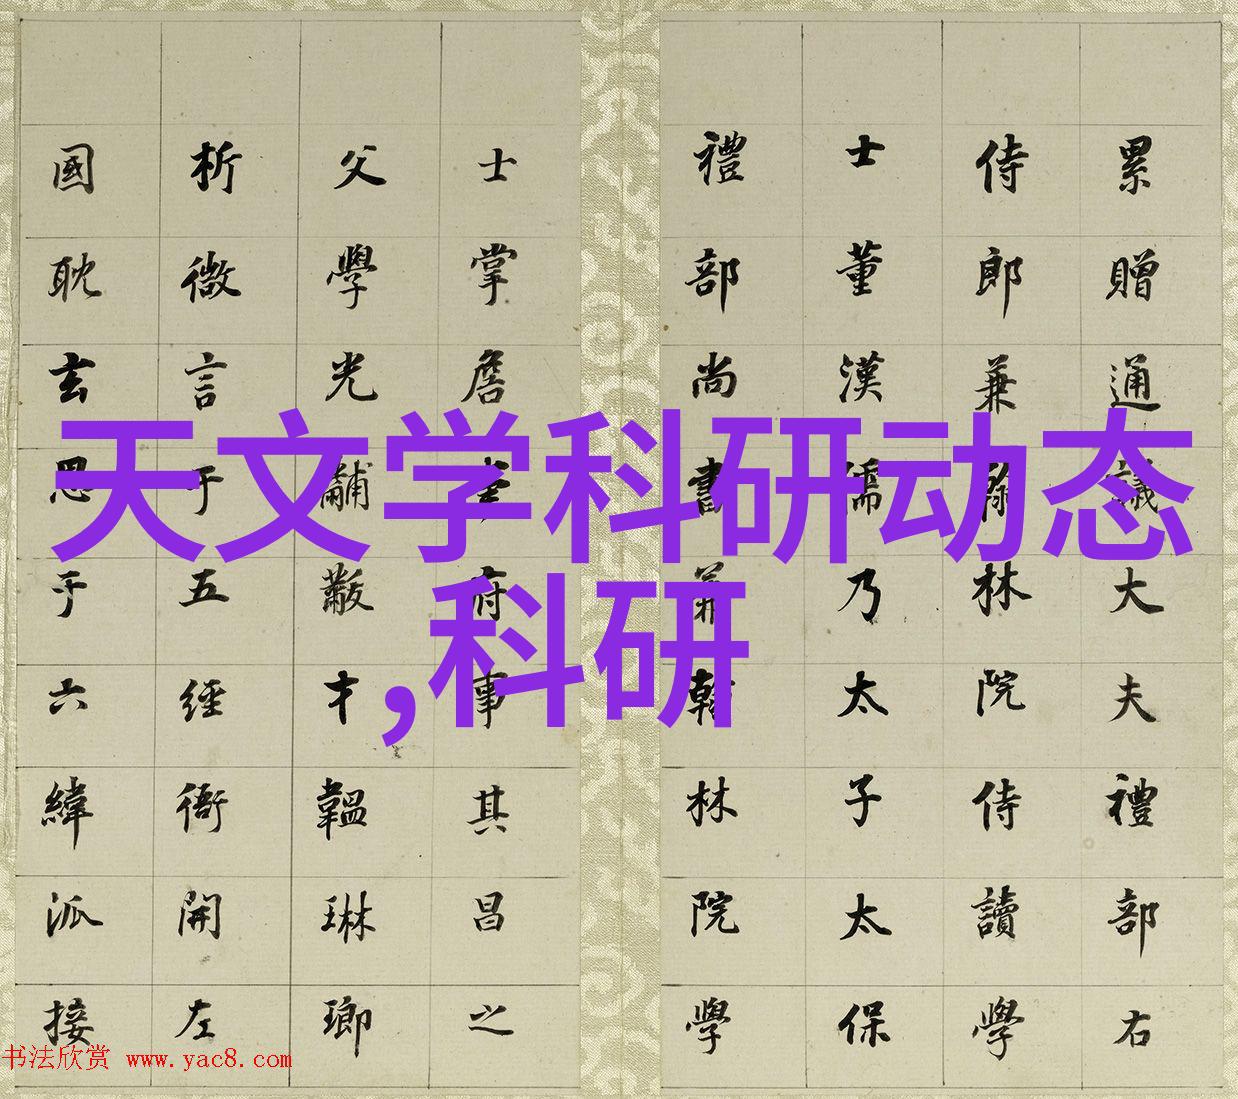 天文学科研动态
,科研
累贈通議大夫禮部右
侍郎兼翰林院侍讀學
士董漢儒乃太子太保
禮部尚書兼翰林院學
士掌詹事府事其昌之
父學光黼黻才韞琳瑯
析微言于五經衙開左
國耽玄思于六緯派接
书法欣赏 www.yac8.com